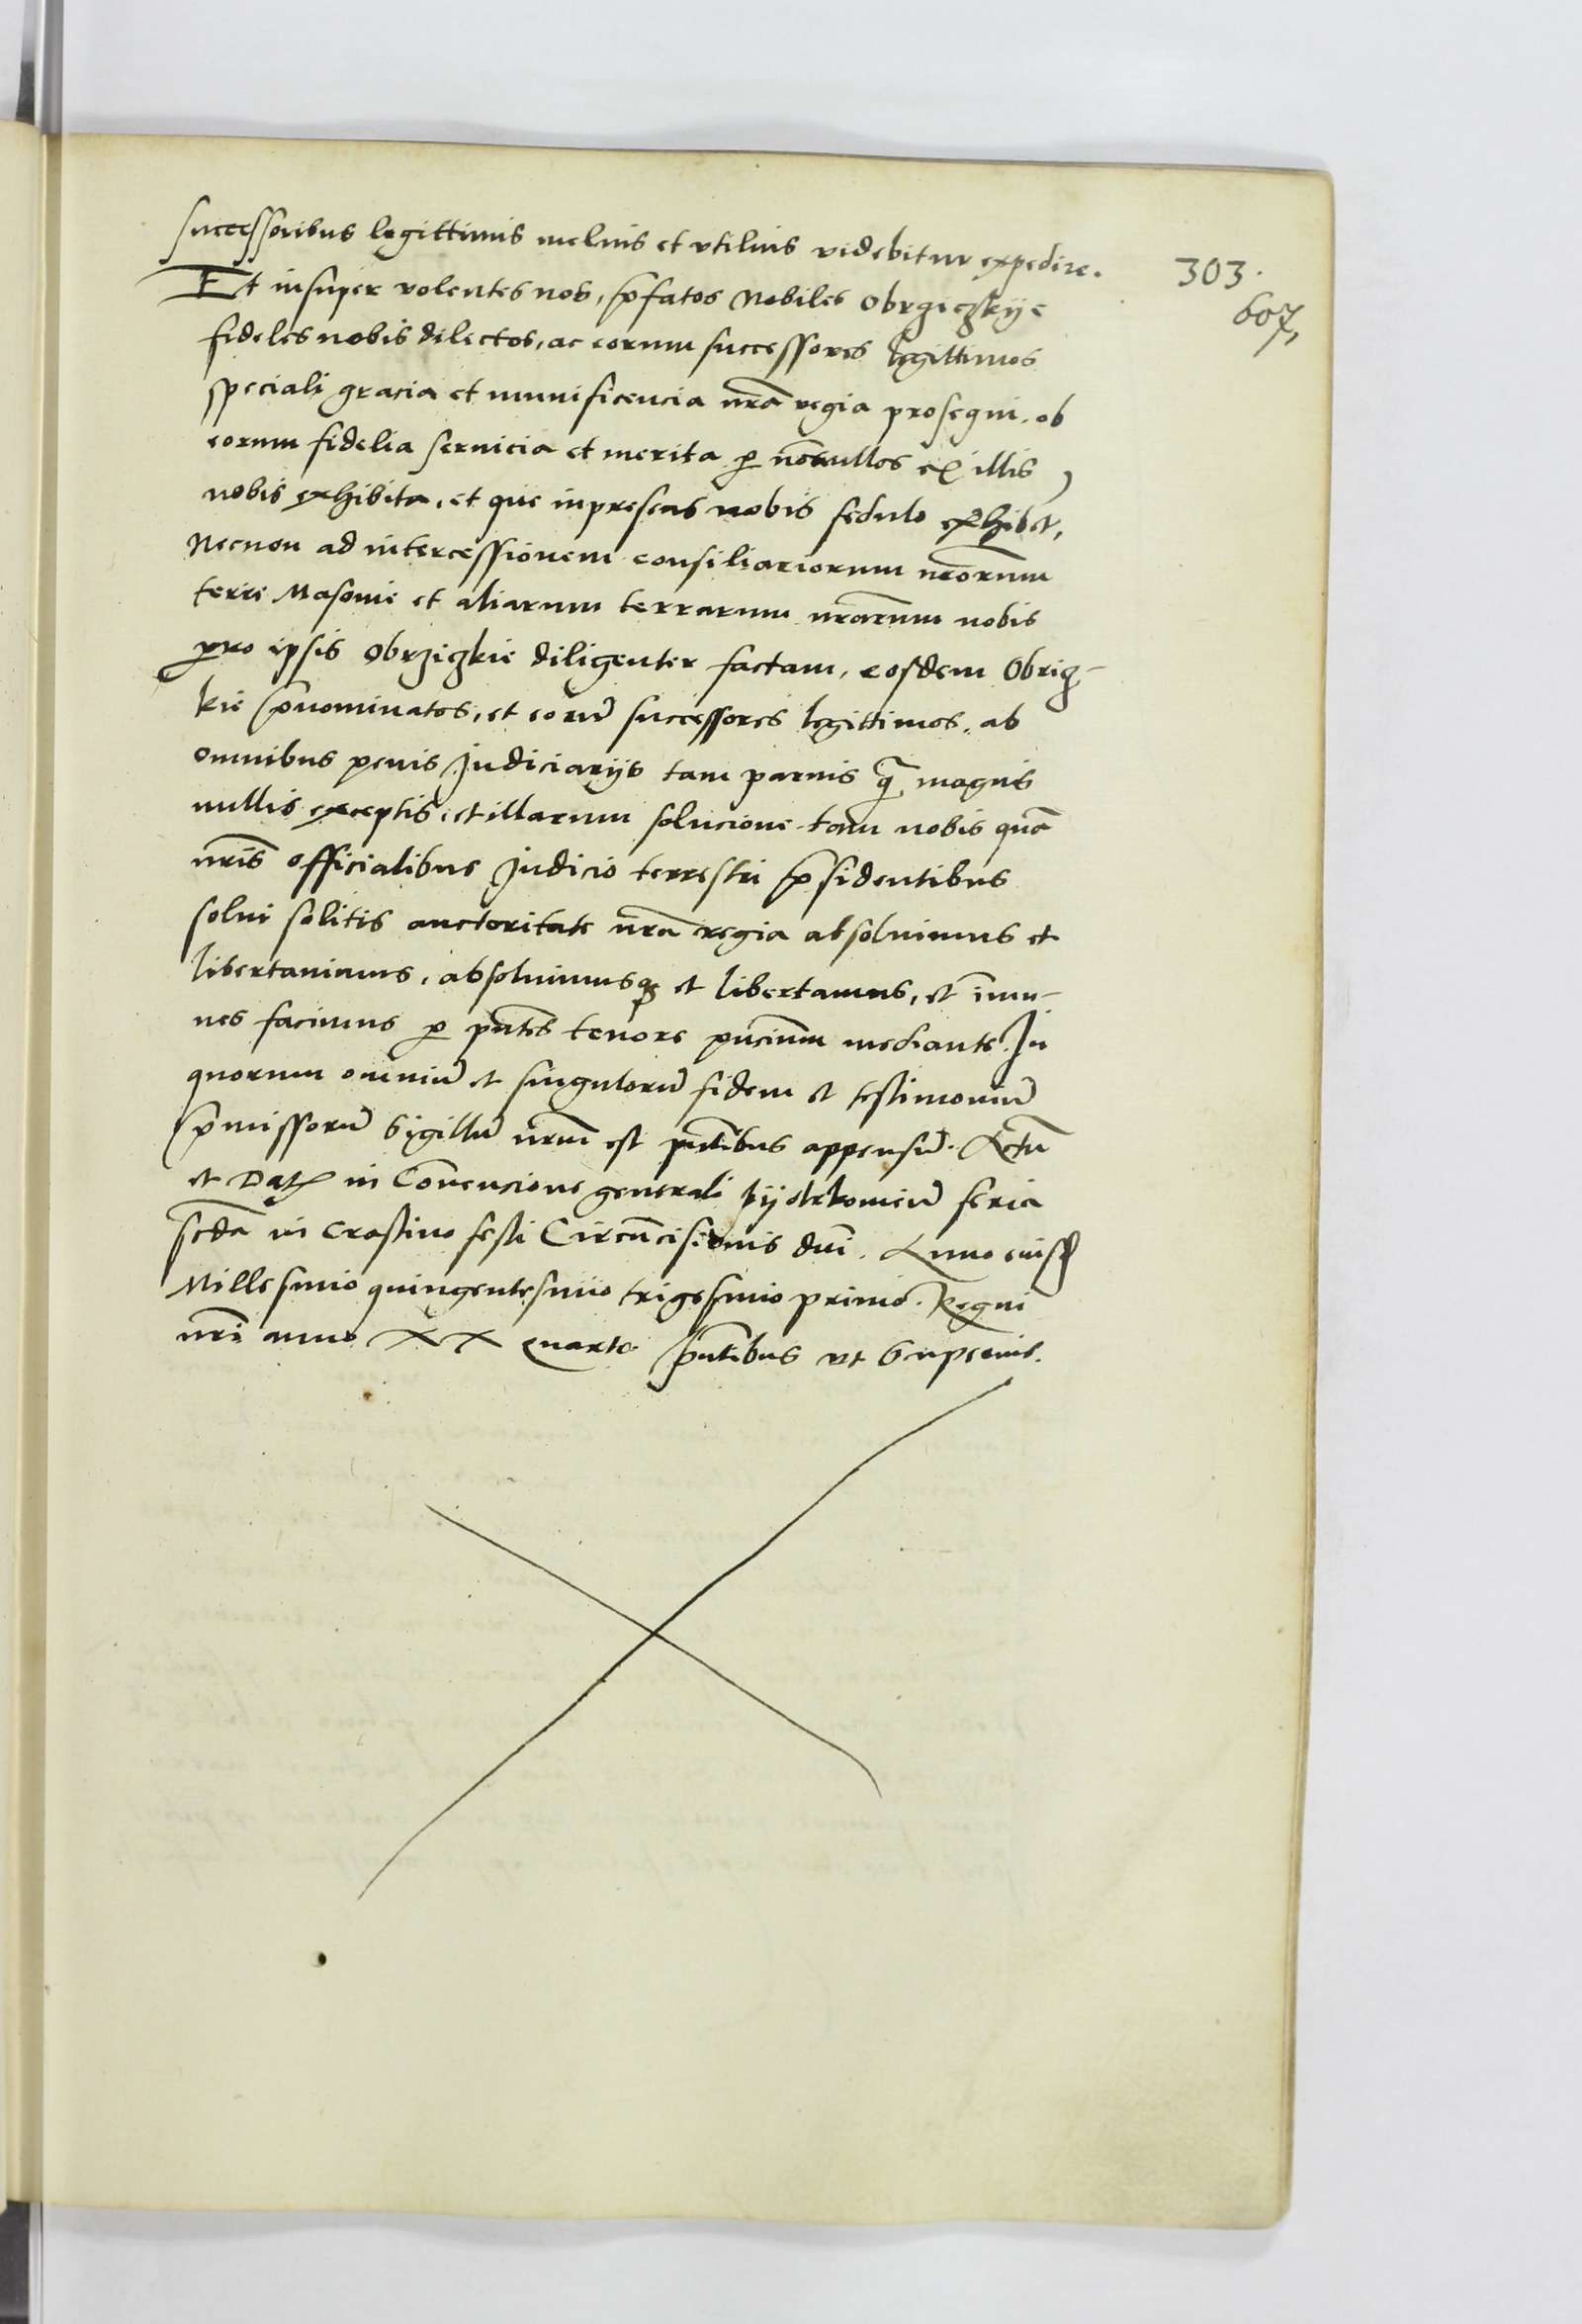 successoribus legittimis melius et vtilius videbitur expedire.
303.
607,
Et insuper volentes nos, p̃fatos Nobiles Obrziczkije
fideles nobis dilectos, ac eorum successores legittimos
speciali gracia et munificencia nr̃a regia prosequi, ob
eorum fidelia seruicia et merita ꝑ nõnullos ex illis
nobis exhibita, et que inpreseñs nobis sedulo exhibet,
Necnon ad intercessionem consiliariorum nr̃orum
terre Masouie et aliarum terrarum nr̃arum nobis
pro ipsis Obrziczkie diligenter factam, eosdem Obricz-
kie p̃nominatos, et eorũ successores legittimos, ab
omnibus penis Judiciarijs tam paruis q̃ magnis
nullis exceptis, et illarum solucione tam nobis quã
nr̃is officialibus Judicio terrestri p̃sidentibus
solui solitis auctoritate nr̃a regia absoluimus et
libertauimus, absoluimusqꝫ et libertamus, et im̃u-
nes facimus ꝑ pñtes tenore pñcium mediante. In
quorum omniũ et singulorũ fidem et testimoniũ
p̃missorũ Sigillũ nr̃um est pñtibus appensũ. Actũ
et Datꝭ in Conũencione generali Pijotrkouieñ feria
scdã in Crastino festi Circũcisionis dñi. Anno eiusd̃
Millesimo quingentesimo trigesimo primo. Regni
nr̃i anno XX quarto. p̃ntibus vt Supranis.